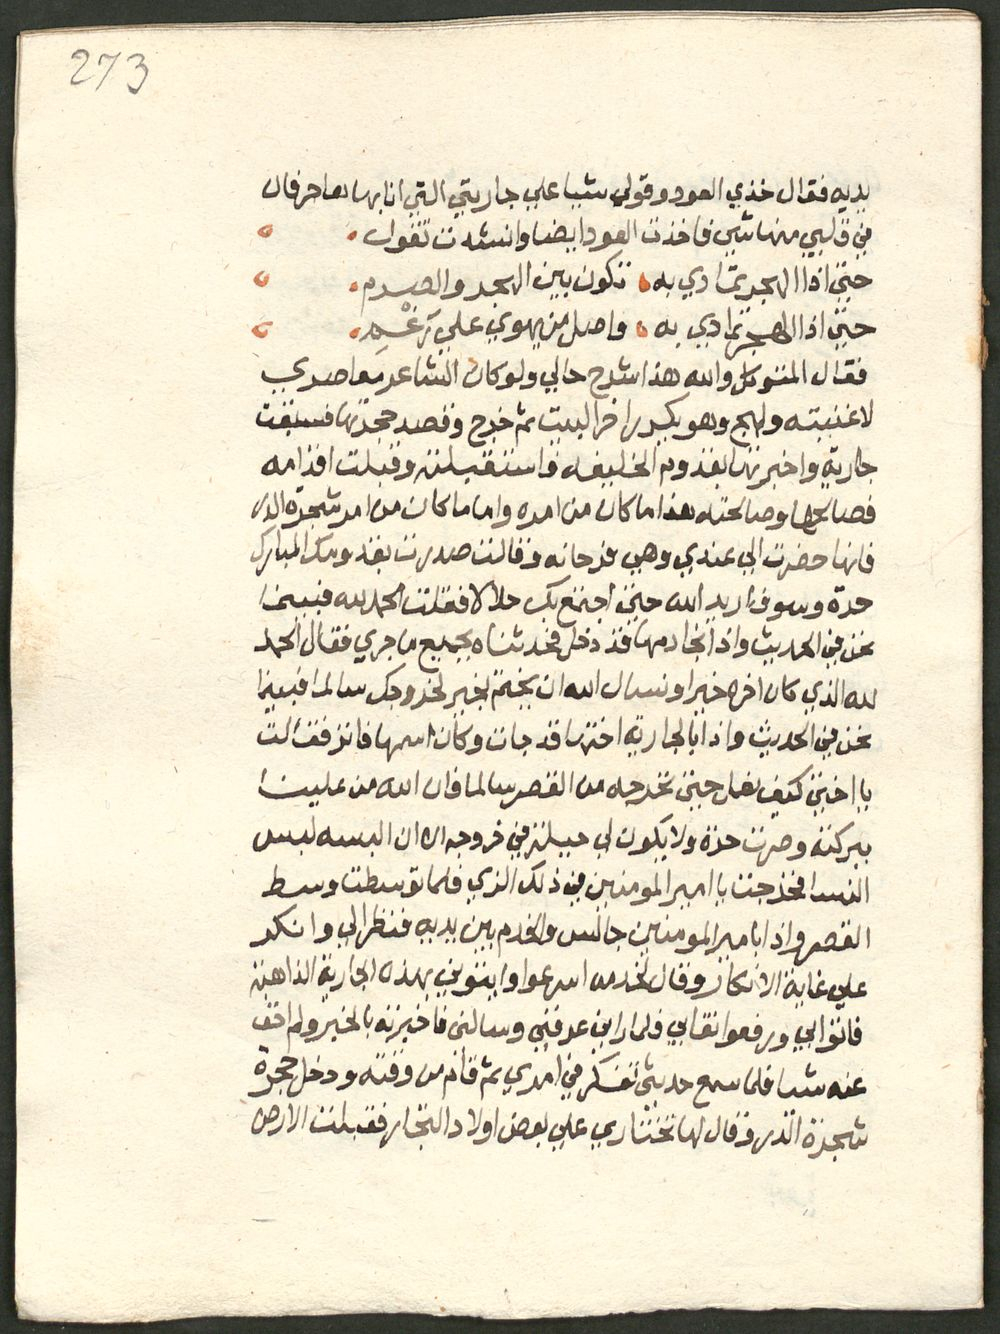 273
يديه فقال خذي العود وقولي شيا علي جاريتي التي انا بها صاحر فان
في قلبي منها شي فاخذت العود ايضا وانشدت تقول
حتي اذا الهجر تمادي به تكون بين الهجر والصرم
حتي اذا الهجر تمادي به واصل من يهوي علي رغم
فقال المتوكل والله هذا شرح حالي ولو كان الشاعر معاصري
لاغنيته ولهج وهو يكررا خر البيت ثم خرج وقصد حجرتها فسبقت
جارية واخبرتها بقدوم الخليفه فاستقبلته وقبلت اقدامه
فصالحها وصالحته هذا ما كان من امره واما ما كان من امر شجرة الدر
فانها حضرت الي عندي وهي فرحانه وقالت صرت بقدومك المبارك
حرة وسوف اريد الله حتي اجتمع بك حلالا فقلت الحمد لله فبينما
نحن في الحديث واذا بخادمها قد دخل فحدثناه بجميع ما جري فقال الحمد
لله الذي كان اخره خيرا ونسال الله ان يختم بخير لخروجك سالما فبينما
نحن في الحديث واذا بالجارية اختها قد جات وكان اسمها فاتر فقالت
يا اختي كيف نعمل حتي نخرجه من القصر سالما فان الله من علينا
ببركته وصرت حرة ولا يكون لي حيلة في خروجه الا ان البسه لبس
النسا فخرجت يا امير المومنين في ذلك الزي فلما توسطت وسط
القصر واذا بامير المومنين جالس والخدم بين يديه فنظر الي وانكر
علي غاية الانكار وقال لخدمه اسرعوا وايتوني بهذه الجارية الذاهبة
فاتوا بي ورفعوا نقابي فلما راني عرفني وسالني فاخبرته بالخبر ولم اخف
عنه شيا فلما سمع حديثي تفكر في امري ثم قام من وقته ودخل حجرة
شجرة الدر وقال لها تختاري علي بعض اولاد التجار فقبلت الارض